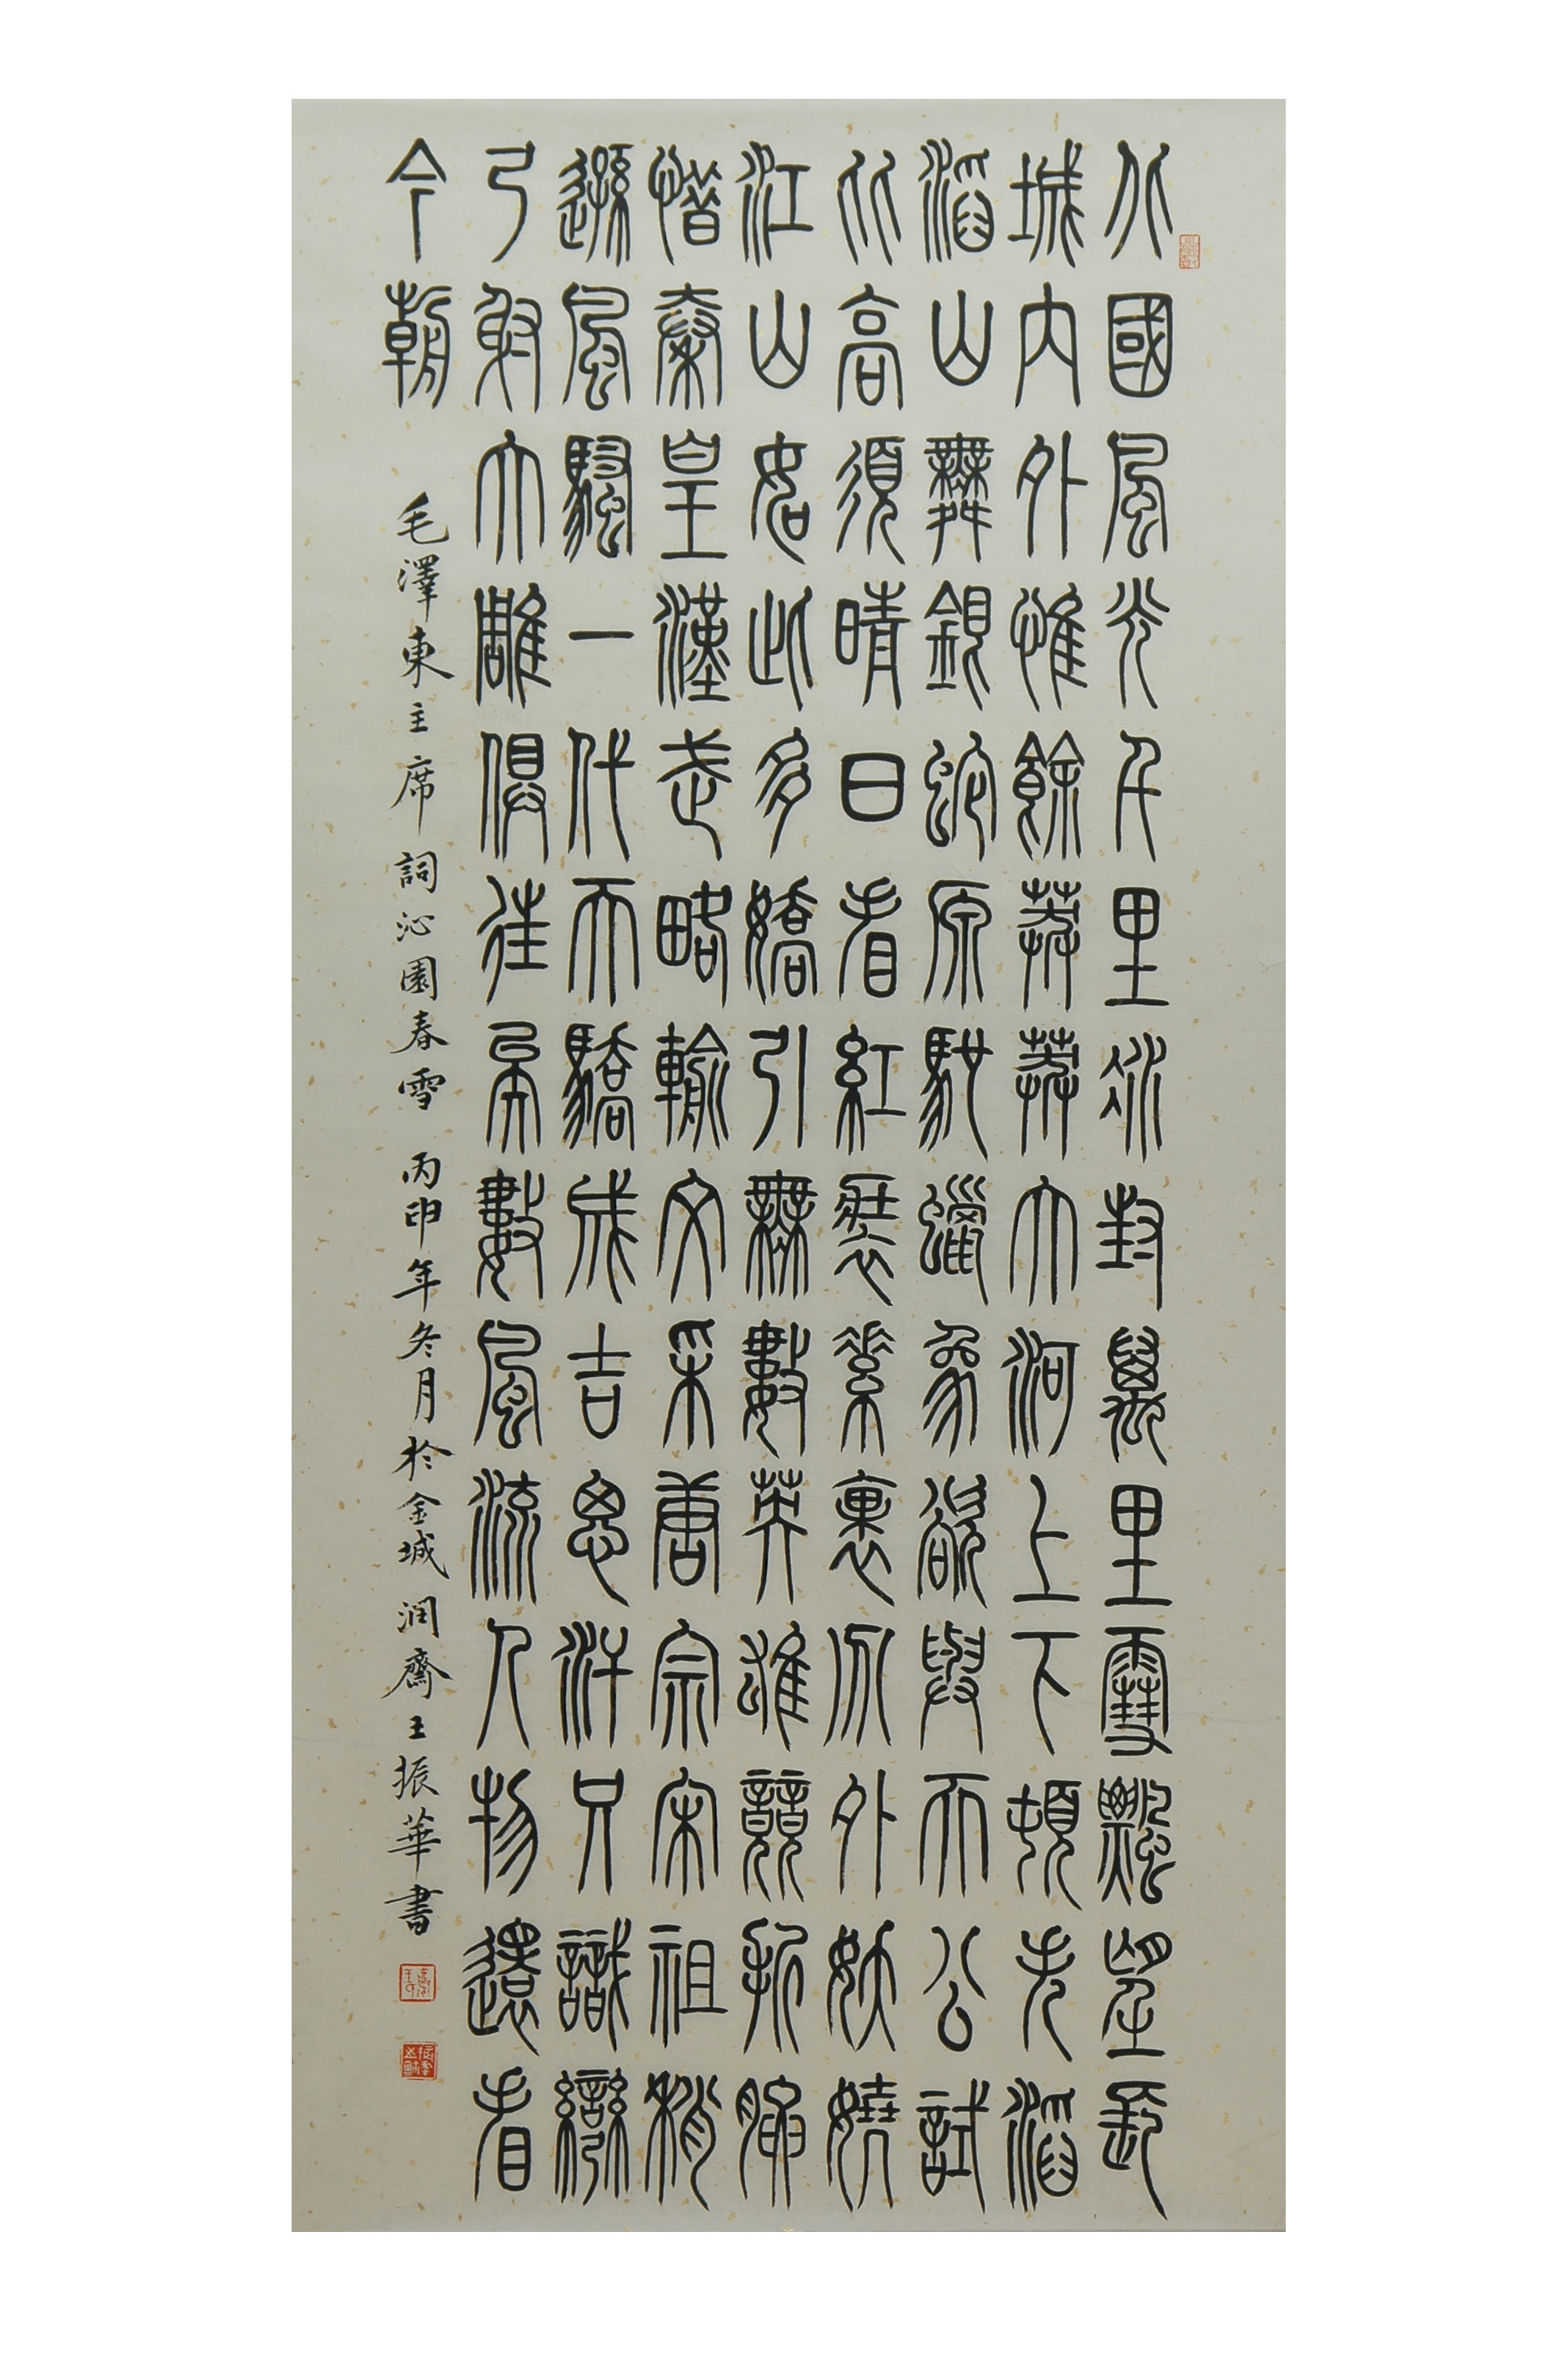 北國風光千里冰封萬里雪飄望長
城內外惟餘莽莽大河上下頓失滔
滔山舞銀蛇原馳蠟象欲與天公試
比高須晴日看紅裝素裹分外妖嬈
江山如此多嬌引無數英雄競折腰
惜秦皇漢武略輸文采唐宗宋祖稍
遜風騷一代天驕成吉思汗只識彎
弓射大雕俱往矣數風流人物還看
今朝
毛澤東主席詞沁園春雪 丙申年冬月於金城润齋王振華書